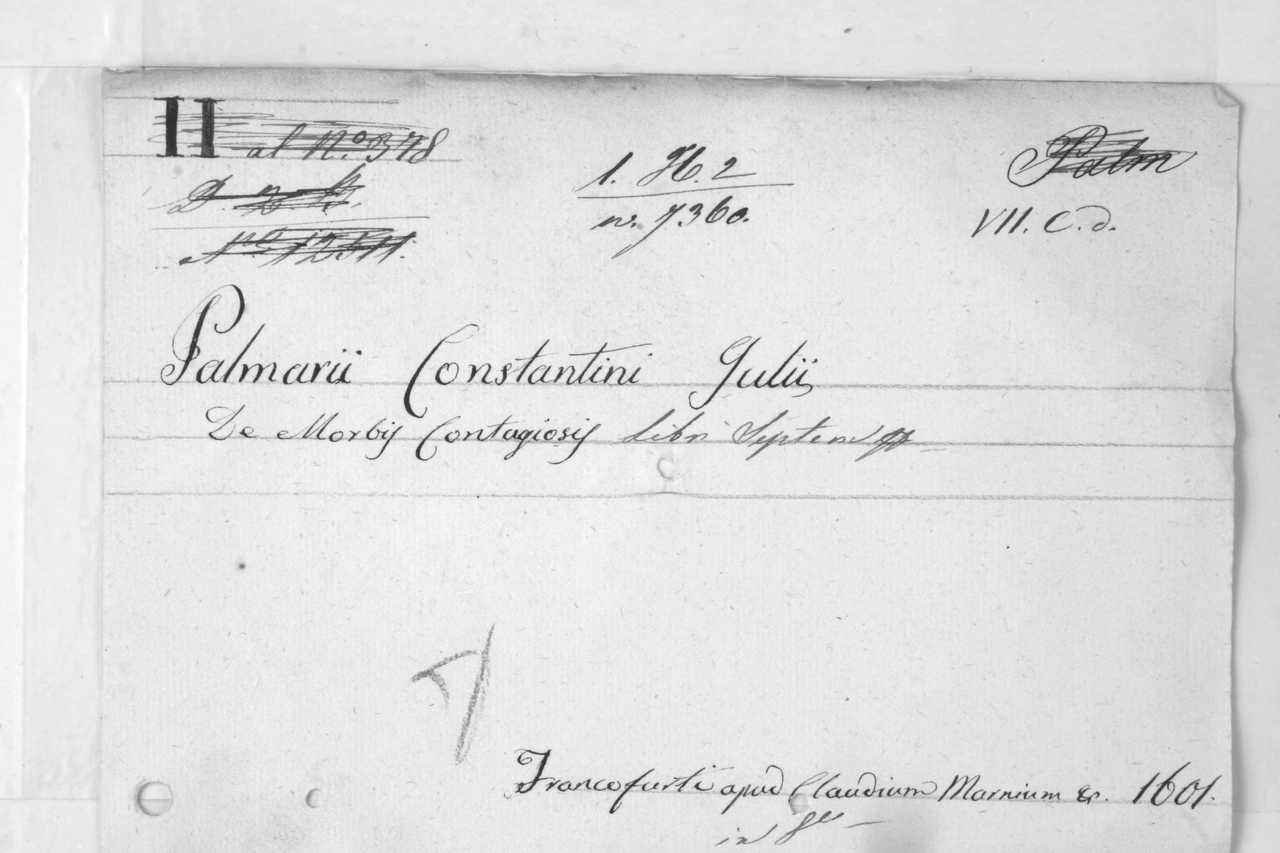 II al N.o 378
1. H. 2
n. 7360.
Palm
VII. C. d.
Palmarii Constantini Julii
De Morbis Contagiosis Libri Septem
Francofurti apud Claudium Marnium &. 1601.
in 8vo